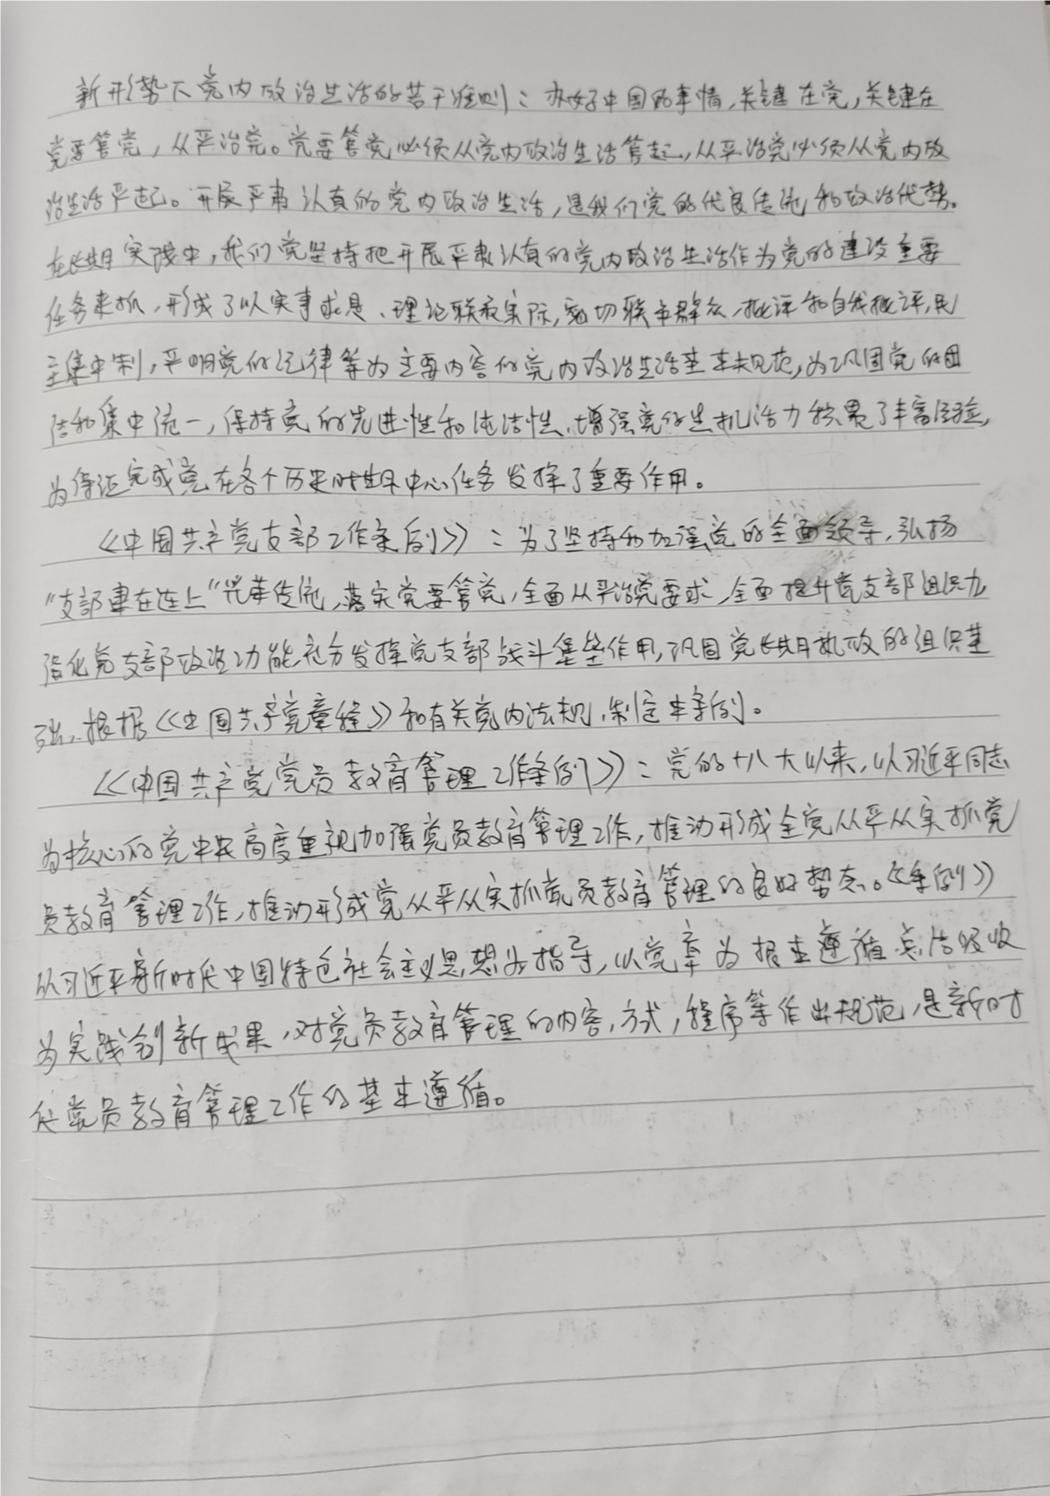 新形势下党内政治生活的若干准则：办好中国的事情，关键在党，关键在
党要管党，从严治党。党要管党必须从党内政治生活管起，从严治党必须从党内政
治生活严起。开展严肃认真的党内政治生活，是我们党的优良传统和政治优势。
在长期实践中，我们党坚持把开展严肃认真的党内政治生活作为党的建设重要
任务来抓，形成了以实事求是、理论联系实际，密切联系群众，批评和自我批评，民
主集中制，严明党的纪律等为主要内容的党内政治生活基本规范，为巩固党的团
结和集中统一，保持党的先进性和纯洁性、增强党的生机活力积累了丰富经验，
为保证完成党在各个历史时期中心任务发挥了重要作用。
《中国共产党支部工作条例》：为了坚持和加强党的全面领导，弘扬
“支部建在连上”光荣传统，落实党要管党，全面从严治党要求，全面提升党支部组织力
强化党支部政治功能，充分发挥党支部战斗堡垒作用，巩固党长期执政的组织基
础，根据《中国共产党章程》和有关党内法规，制定本条例。
《中国共产党党员教育管理工作条例》：党的十八大以来，以习近平同志
为核心的党中央高度重视加强党员教育管理工作，推动形成全党从严从实抓党
员教育管理工作，推动形成党从严从实抓党员教育管理的良好势态。《条例》
以习近平新时代中国特色社会主义思想为指导，以党章为根本遵循，总结吸收
为实践创新成果，对党员教育管理的内容，方式，程序等作出规范，是新时
代党员教育管理工作的基本遵循。